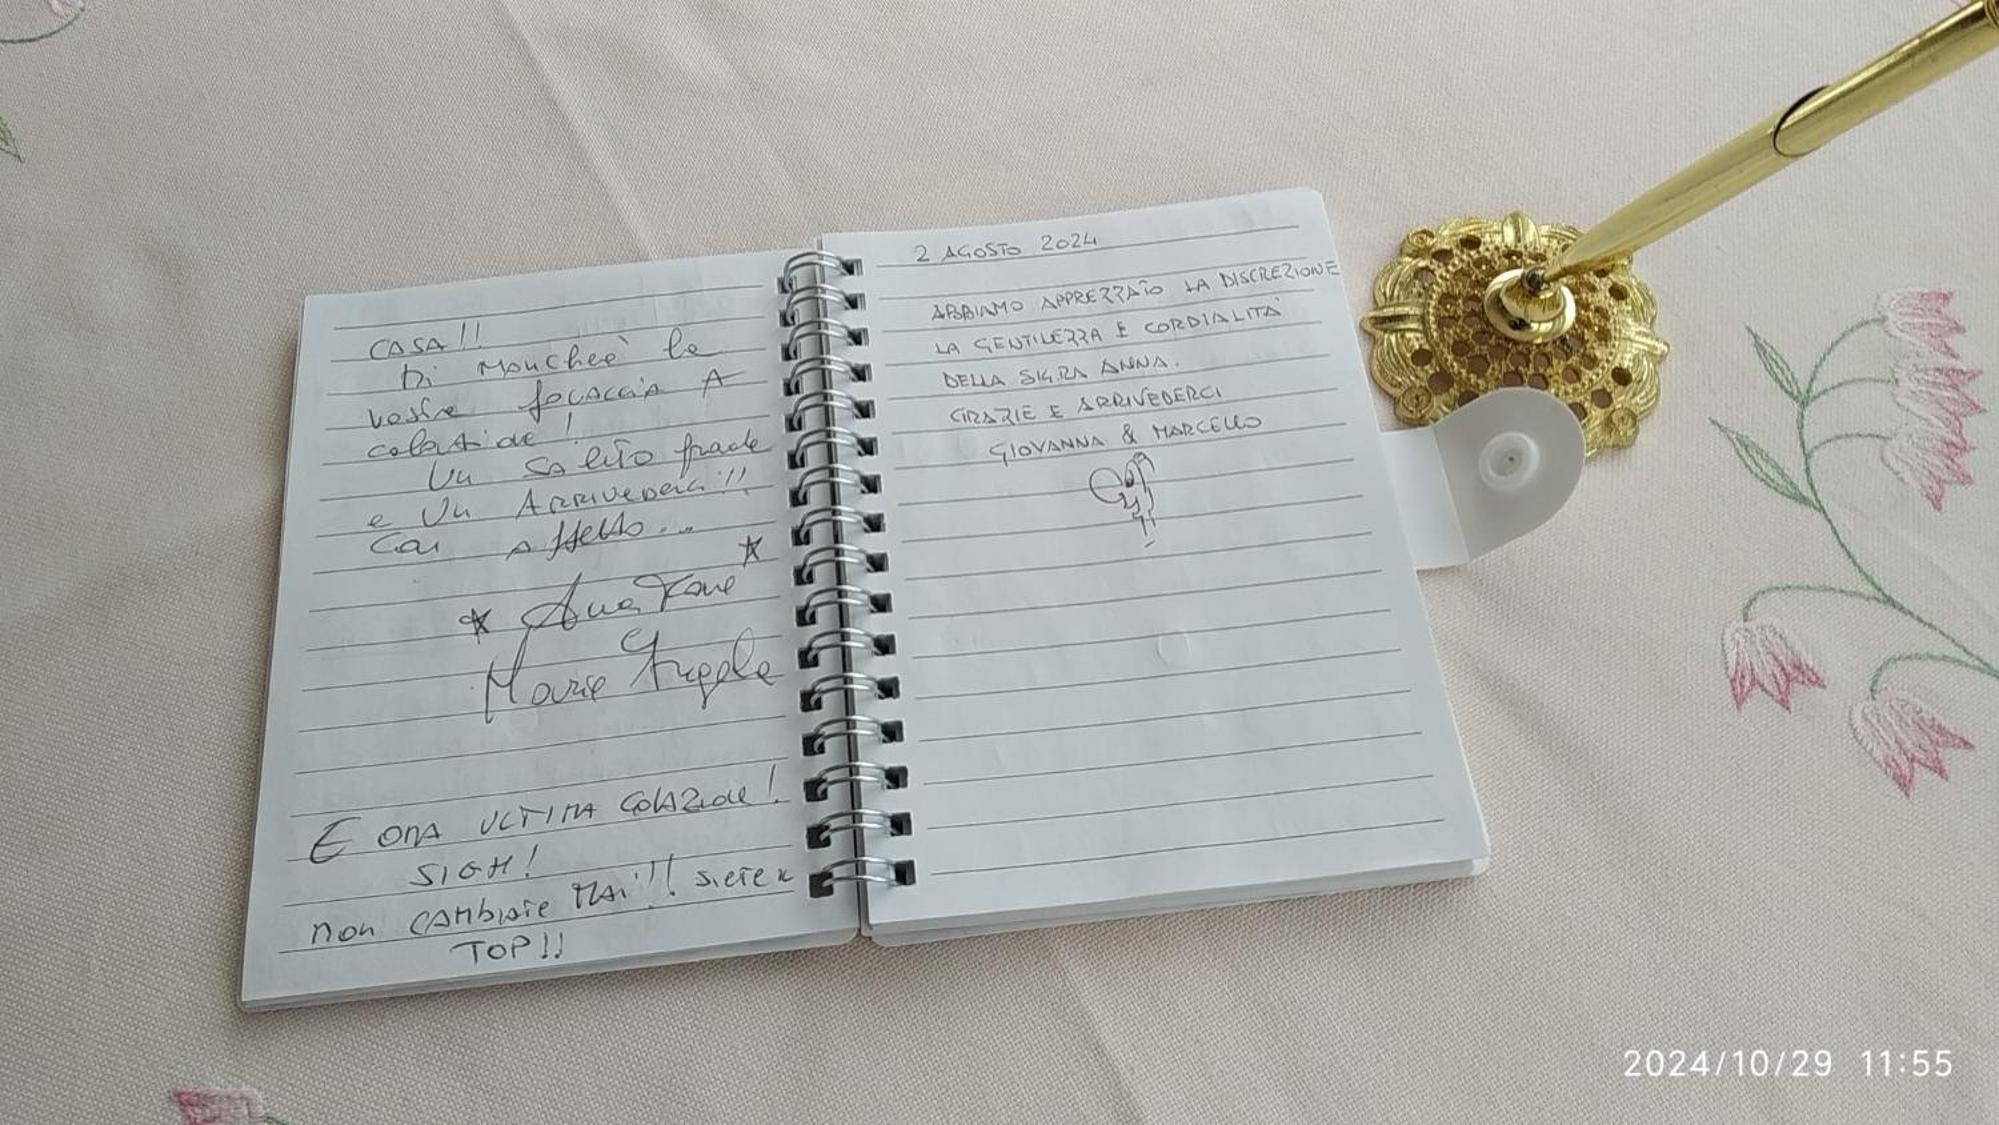 CASA!!
Ci mancherà la
vostra focaccia A
colazione!
Un saluto grande
e Un Arrivederci!!
Con affetto...
Maria Angela
E ORA ULTIMA COLAZIONE!
SIGH!
non CAMBIATE MAI!! SIETE
TOP!!
2 AGOSTO 2024
ABBIAMO APPREZZATO LA DISCREZIONE
LA GENTILEZZA E CORDIALITÀ
DELLA SIG.RA ANNA.
GRAZIE E ARRIVEDERCI
GIOVANNA & MARCELLO
2024/10/29 11:55